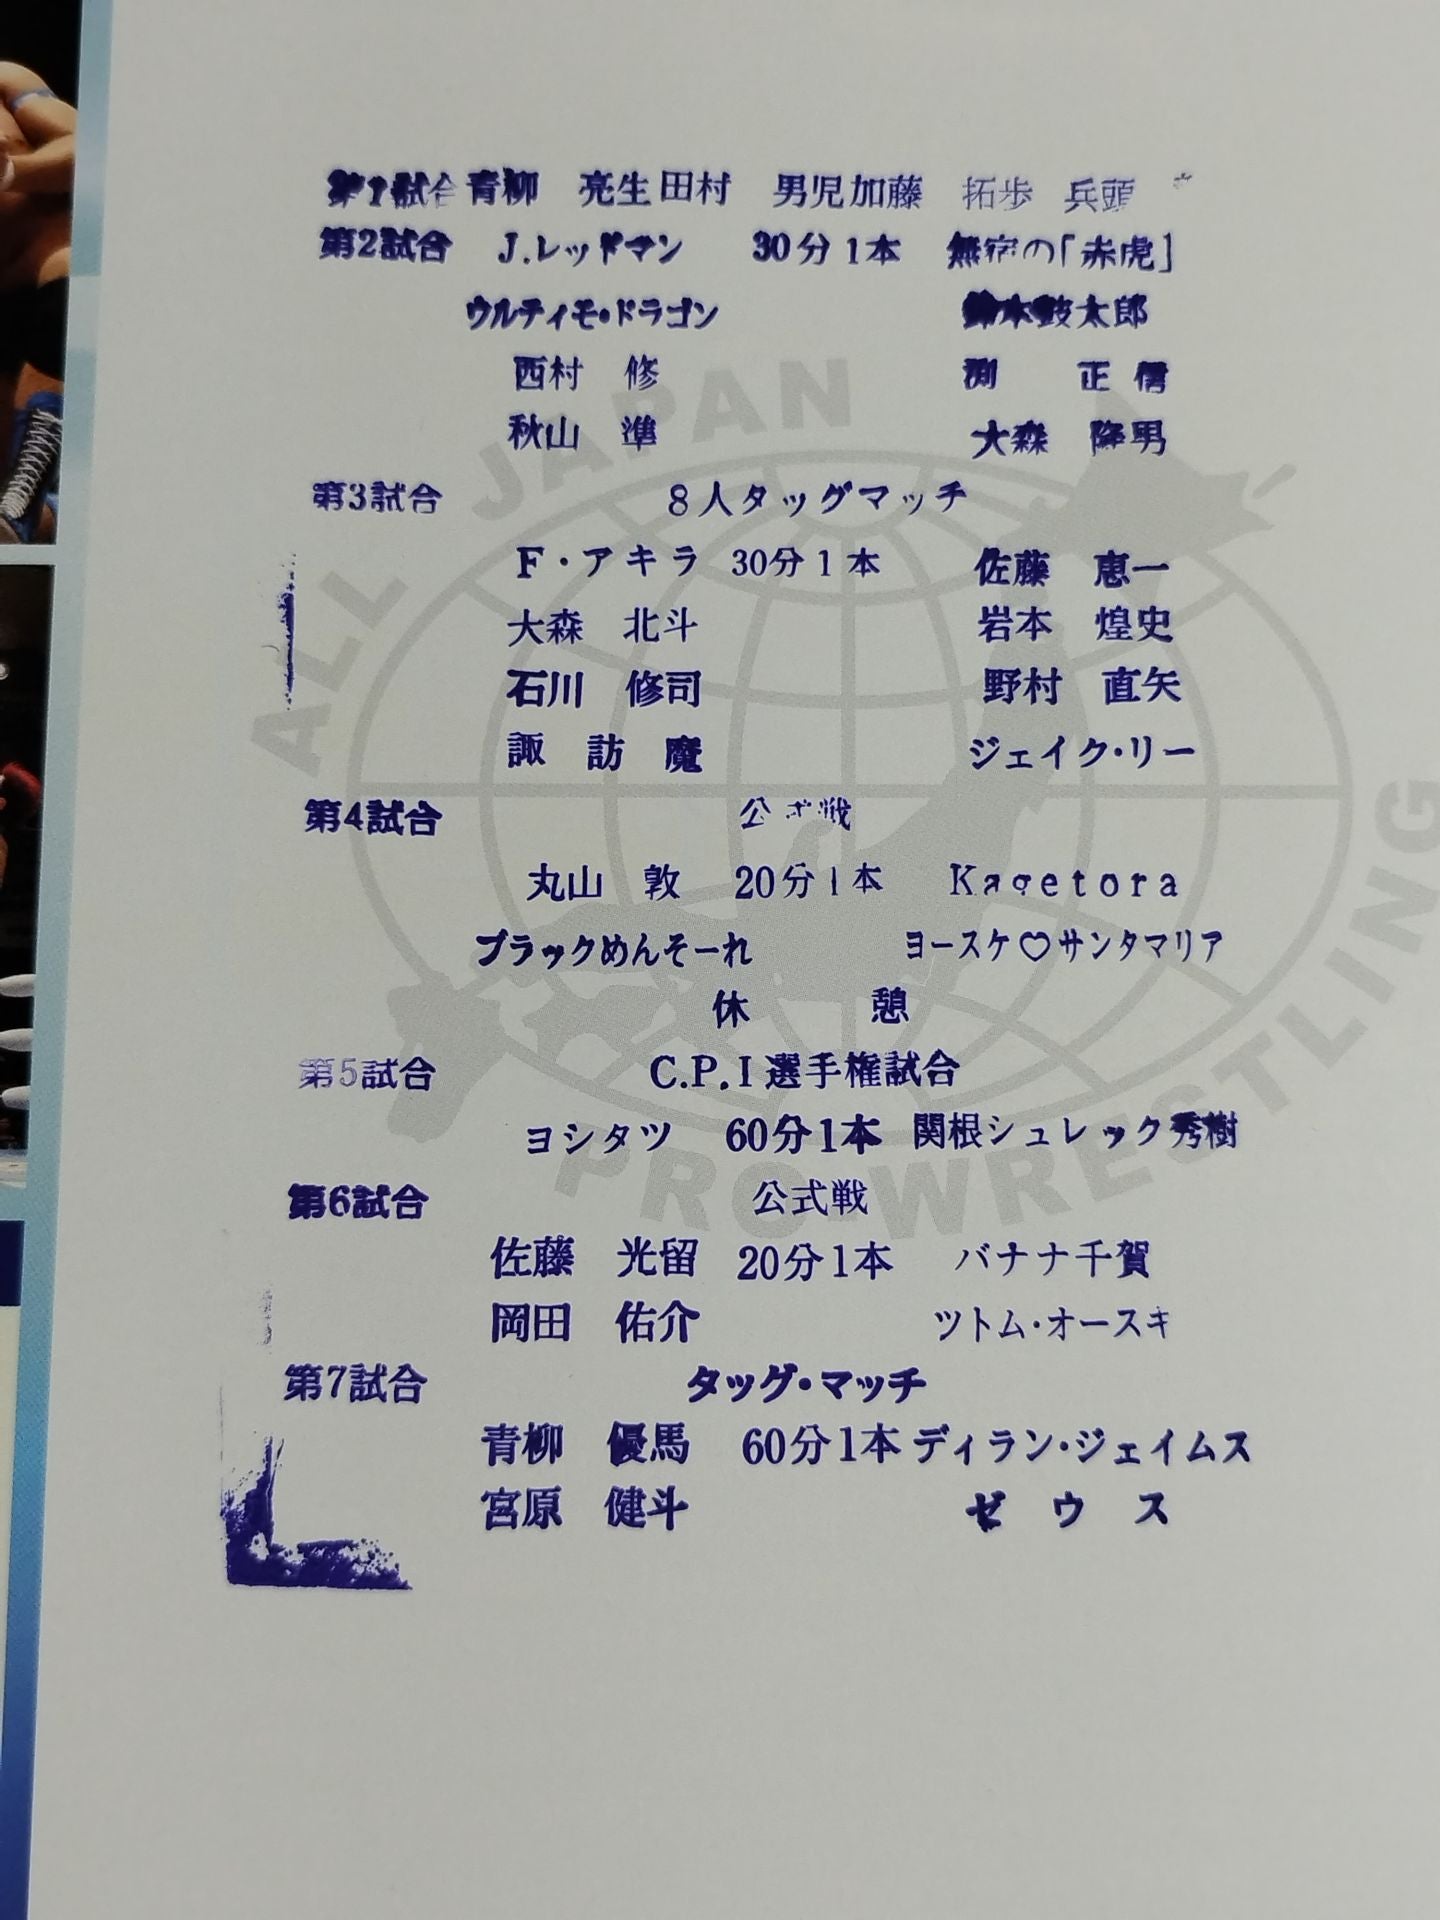 第1試合 青柳 亮生 田村 男児 加藤 拓歩 兵頭
第2試合 J.レッドマン 30分1本 無宿の「赤虎」
ウルティモ・ドラゴン 鈴木鼓太郎
西村 修 渕 正信
秋山 準 大森 隆男
第3試合 8人タッグマッチ
F・アキラ 30分1本 佐藤 恵一
大森 北斗 岩本 煌史
石川 修司 野村 直矢
諏訪魔 ジェイク・リー
第4試合 公式戦
丸山 敦 20分1本 Kagetora
ブラックめんそーれ ヨースケ♡サンタマリア
休憩
第5試合 C.P.I選手権試合
ヨシタツ 60分1本 関根シュレック秀樹
第6試合 公式戦
佐藤 光留 20分1本 バナナ千賀
岡田 佑介 ツトム・オースギ
第7試合 タッグ・マッチ
青柳 優馬 60分1本 ディラン・ジェイムス
宮原 健斗 ゼウス
ALL JAPAN PRO-WRESTLING